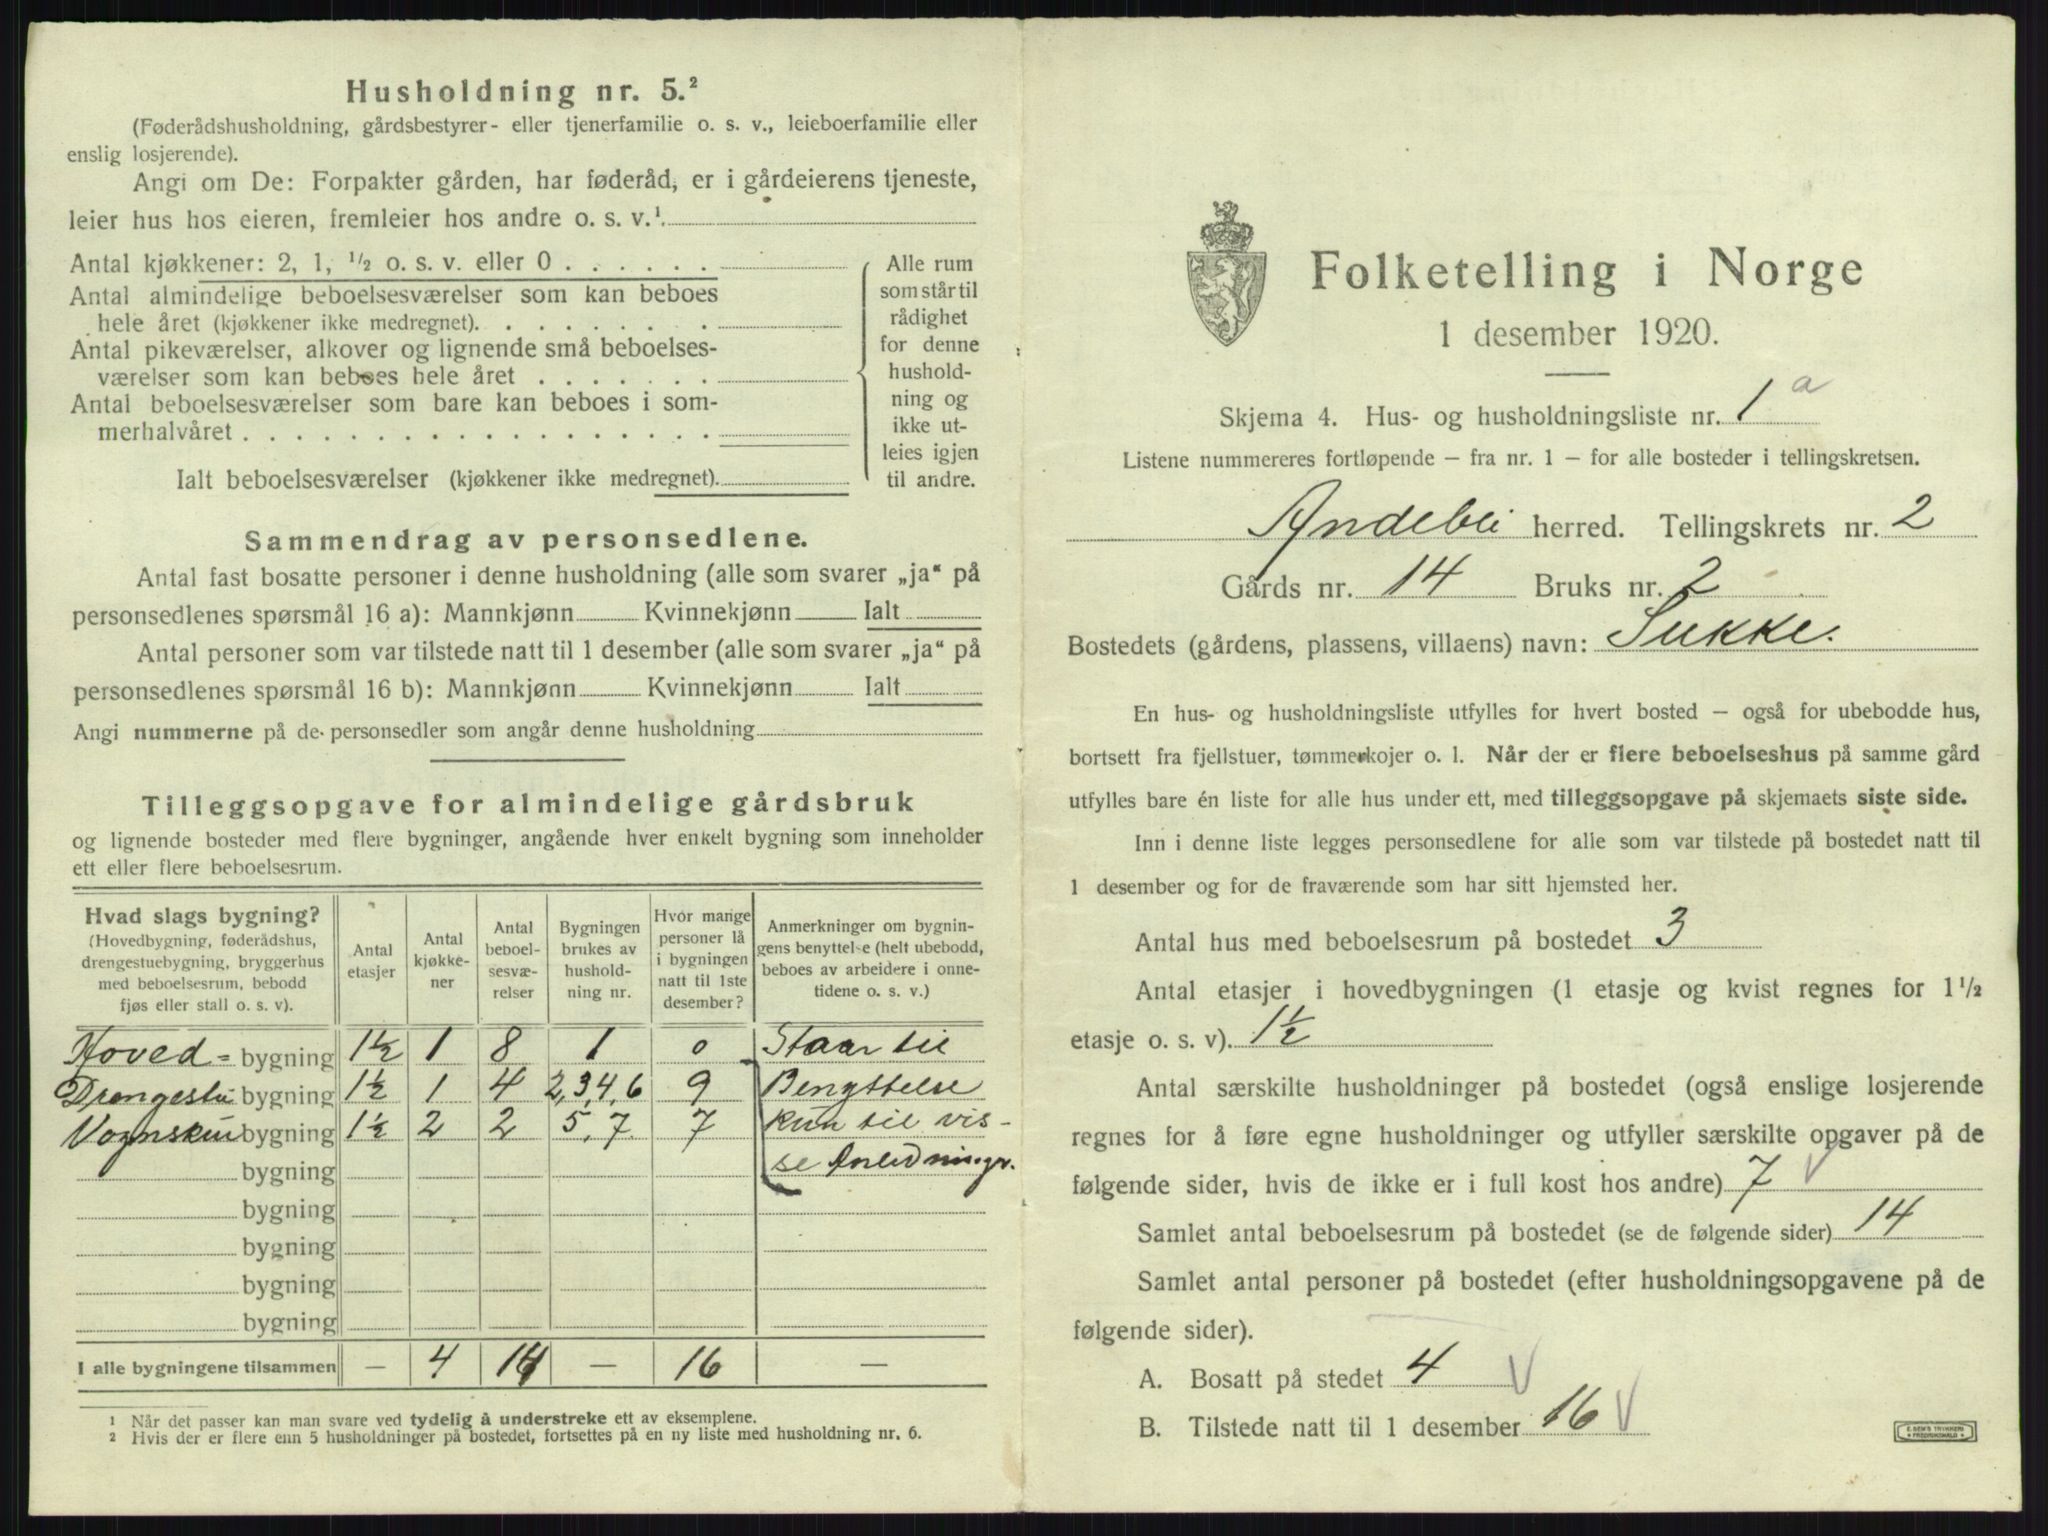 Husholdning nr. 5.²
(Føderådshusholdning, gårdsbestyrer- eller tjenerfamilie o. s. v., leieboerfamilie eller
enslig losjerende).
Angi om De: Forpakter gården, har føderåd, er i gårdeierens tjeneste,
leier hus hos eieren, fremleier hos andre o. s. v.¹
Antal kjøkkener: 2, 1, ½ o. s. v. eller 0
Antal almindelige beboelsesværelser som kan beboes
hele året (kjøkkener ikke medregnet).
Antal pikeværelser, alkover og lignende små beboelses-
værelser som kan beboes hele året
Antal beboelsesværelser som bare kan beboes i som-
merhalvåret
Ialt beboelsesværelser (kjøkkener ikke medregnet).
Alle rum
som står til
rådighet
for denne
hushold-
ning og
ikke ut-
leies igjen
til andre.
Sammendrag av personsedlene.
Antal fast bosatte personer i denne husholdning (alle som svarer „ja“ på
personsedlenes spørsmål 16 a): Mannkjønn Kvinnekjønn Ialt
Antal personer som var tilstede natt til 1 desember (alle som svarer „ja“ på
personsedlenes spørsmål 16 b): Mannkjønn Kvinnekjønn Ialt
Angi nummerne på de personsedler som angår denne husholdning
Tilleggsopgave for almindelige gårdsbruk
og lignende bosteder med flere bygninger, angående hver enkelt bygning som inneholder
ett eller flere beboelsesrum.
Hvad slags bygning?
(Hovedbygning, føderådshus,
drengestuebygning, bryggerhus
med beboelsesrum, bebodd
fjøs eller stall o. s. v).
Antal
etasjer
Antal
kjøkke-
ner
Antal
beboel-
sesvæ-
relser
Bygningen
brukes av
hushold-
ning nr.
Hvor mange
personer lå
i bygningen
natt til 1ste
desember?
Anmerkninger om bygnin-
gens benyttelse (helt ubebodd,
beboes av arbeidere i onne-
tidene o. s. v.)
Hoved= bygning 1½ 1 8 1 0 Staar til
Drengestu bygning 1½ 1 4 2,3,4,6 9 Benyttelse
Vognskur bygning 1½ 2 2 5,7 7 kun til vis-
bygning se Anledninger.
bygning
bygning
bygning
bygning
I alle bygningene tilsammen — 4 14 — 16 —
¹ Når det passer kan man svare ved tydelig å understreke ett av eksemplene.
² Hvis der er flere enn 5 husholdninger på bostedet, fortsettes på en ny liste med husholdning nr. 6.
Folketelling i Norge
1 desember 1920.
Skjema 4. Hus- og husholdningsliste nr. 1 a
Listene nummereres fortløpende – fra nr. 1 – for alle bosteder i tellingskretsen.
Andebu herred. Tellingskrets nr. 2
Gårds nr. 14 Bruks nr. 2
Bostedets (gårdens, plassens, villaens) navn: Sukke.
En hus- og husholdningsliste utfylles for hvert bosted – også for ubebodde hus,
bortsett fra fjellstuer, tømmerkojer o. l. Når der er flere beboelseshus på samme gård
utfylles bare én liste for alle hus under ett, med tilleggsopgave på skjemaets siste side.
Inn i denne liste legges personsedlene for alle som var tilstede på bostedet natt til
1 desember og for de fraværende som har sitt hjemsted her.
Antal hus med beboelsesrum på bostedet 3
Antal etasjer i hovedbygningen (1 etasje og kvist regnes for 1½
etasje o. s. v). 1½
Antal særskilte husholdninger på bostedet (også enslige losjerende
regnes for å føre egne husholdninger og utfyller særskilte opgaver på de
følgende sider, hvis de ikke er i full kost hos andre) 7 V
Samlet antal beboelsesrum på bostedet (se de følgende sider) 14
Samlet antal personer på bostedet (efter husholdningsopgavene på de
følgende sider).
A. Bosatt på stedet 4 V
B. Tilstede natt til 1 desember 16 V
E. SEM'S TRYKKERI
FREDRIKSHALD